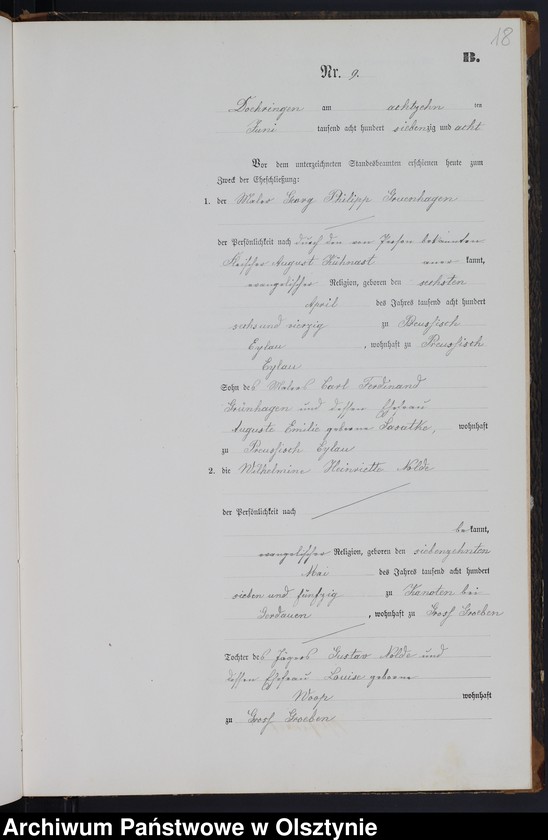 18
B.
Nr. 9.
Doehringen am achtzehn ten
Juni tausend acht hundert siebenzig und acht
Vor dem unterzeichneten Standesbeamten erschienen heute zum
Zweck der Eheschließung:
1. der Maler Georg Philipp Gruenhagen
der Persönlichkeit nach durch den von Person bekannten
Fleischer August Kühnast aner kannt,
evangelischer Religion, geboren den sechsten
April des Jahres tausend acht hundert
sechs und vierzig zu Preussisch
Eylau, wohnhaft zu Preussisch
Eylau
Sohn des Malers Carl Ferdinand
Grünhagen und dessen Ehefrau
Auguste Emilie geborne wohnhaft
zu Preussisch Eylau
2. die Wilhelmine Heinriette Nolde
der Persönlichkeit nach
be kannt,
evangelischer Religion, geboren den siebenzehnten
Mai des Jahres tausend acht hundert
sieben und fünfzig zu Kanoten bei
Gerdauen, wohnhaft zu Gross Groeben
Tochter des Jägers Gustav Nolde und
dessen Ehefrau Louise geborne
Woop wohnhaft
zu Gross Groeben
Archiwum Państwowe w Olsztynie